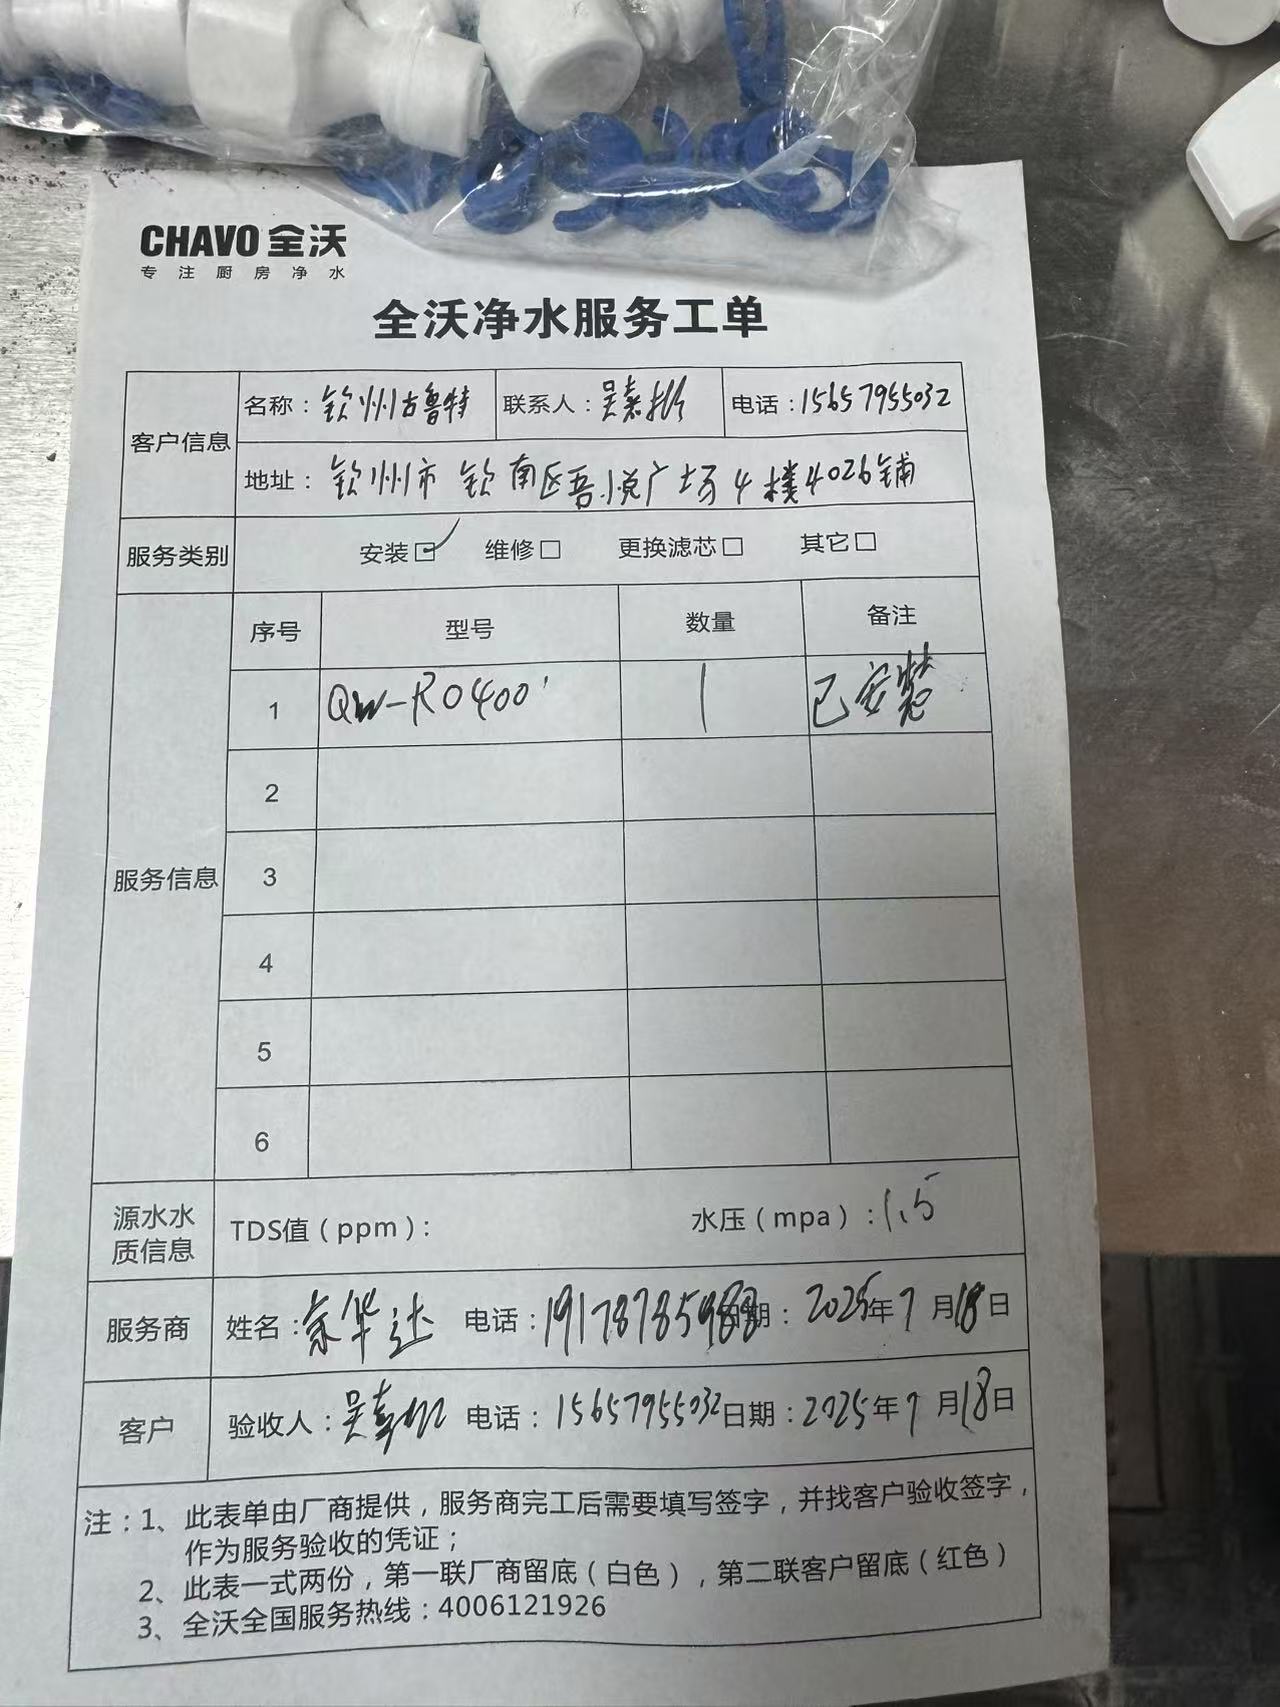 CHAVO 全沃
专注厨房净水
全沃净水服务工单
客户信息 名称：钦州古鲁特 联系人：吴嘉 电话：15657955032
地址：钦州市 钦南区吾悦广场4楼4026铺
服务类别 安装☑ 维修□ 更换滤芯□ 其它□
服务信息 序号 型号 数量 备注
1 QW-RO400 1 已安装
2
3
4
5
6
源水水质信息 TDS值（ppm）： 水压（mpa）：1.5
服务商 姓名：华达 电话：191787859 日期：2025年7月18日
客户 验收人：吴嘉 电话：15657955032 日期：2025年7月18日
注：1、此表单由厂商提供，服务商完工后需要填写签字，并找客户验收签字，
作为服务验收的凭证；
2、此表一式两份，第一联厂商留底（白色），第二联客户留底（红色）
3、全沃全国服务热线：4006121926